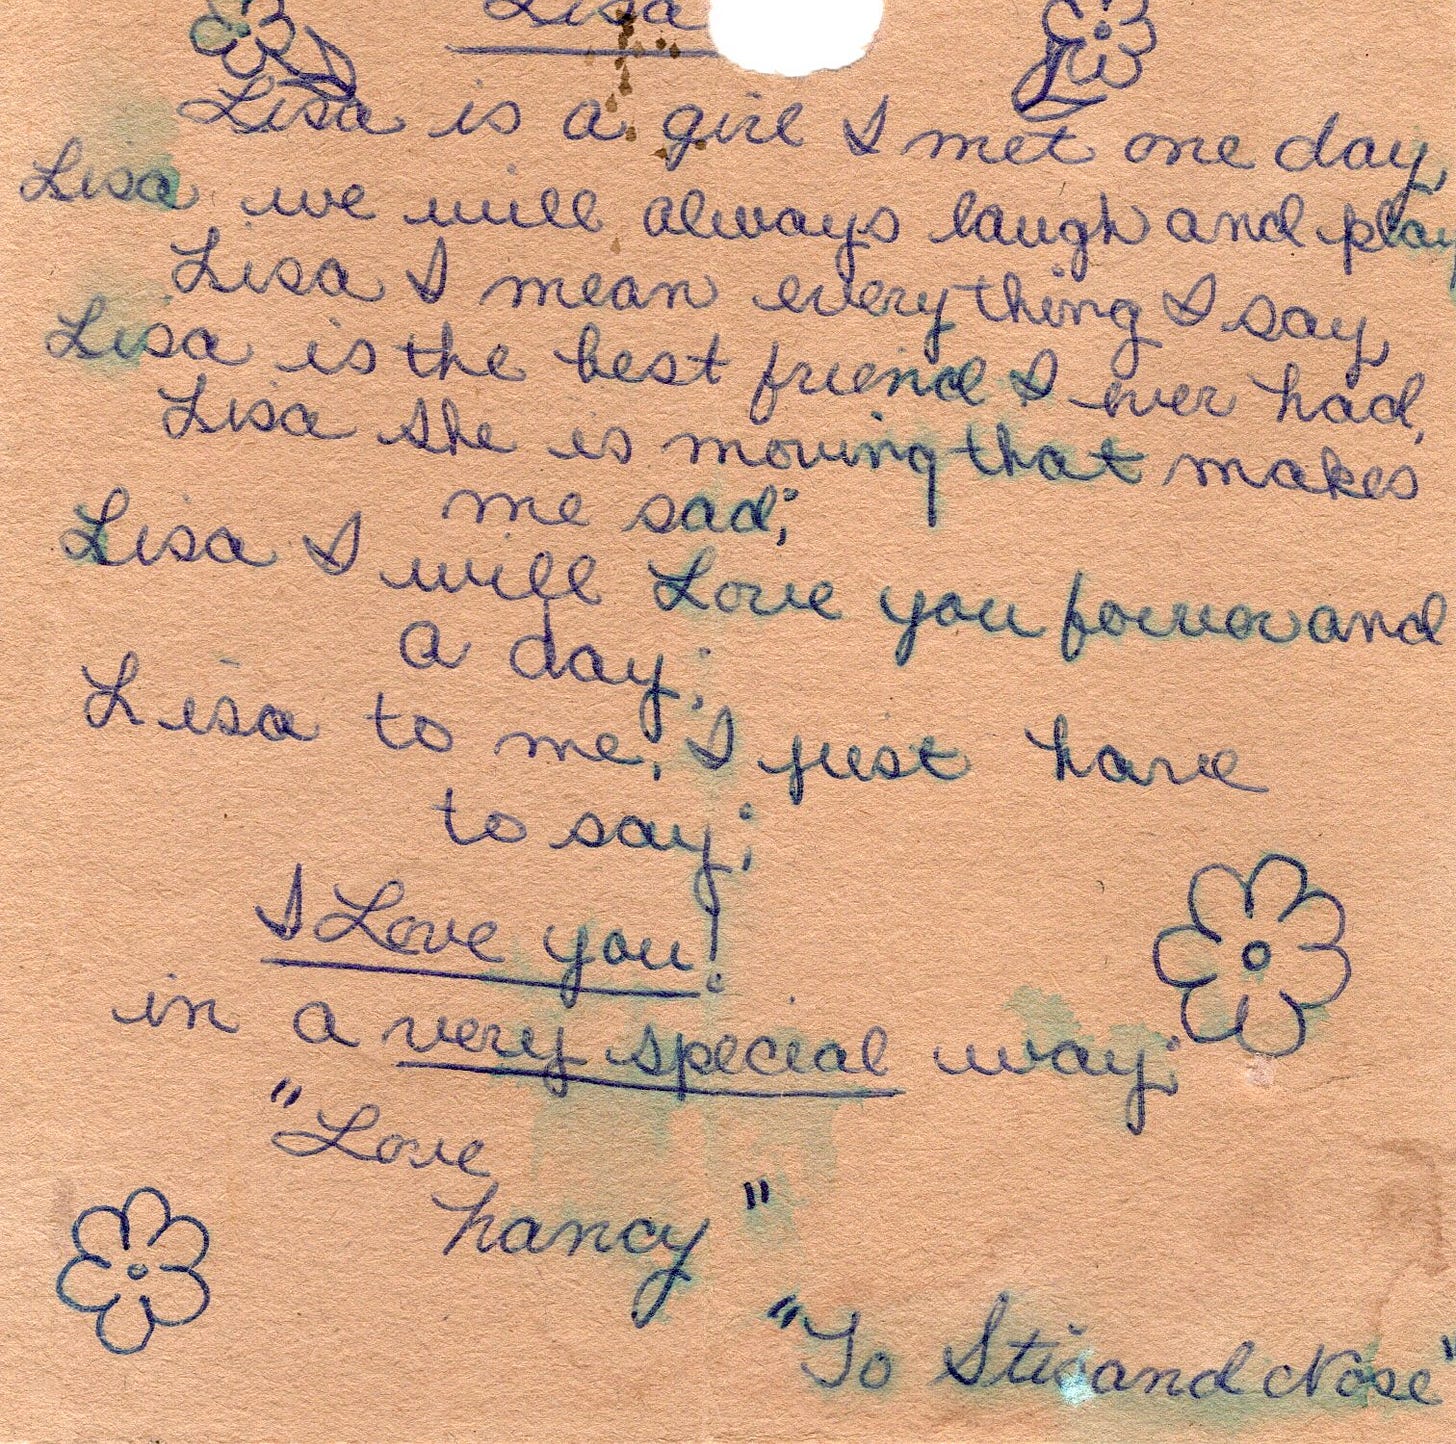 Lisa
Lisa is a girl I met one day,
Lisa we will always laugh and play
Lisa I mean everything I say
Lisa is the best friend I ever had,
Lisa she is moving that makes
me sad;
Lisa I will Love you forever and
a day;
Lisa to me, I just have
to say;
I Love you!
in a very special way;
"Love
Nancy"
"To and Nose"